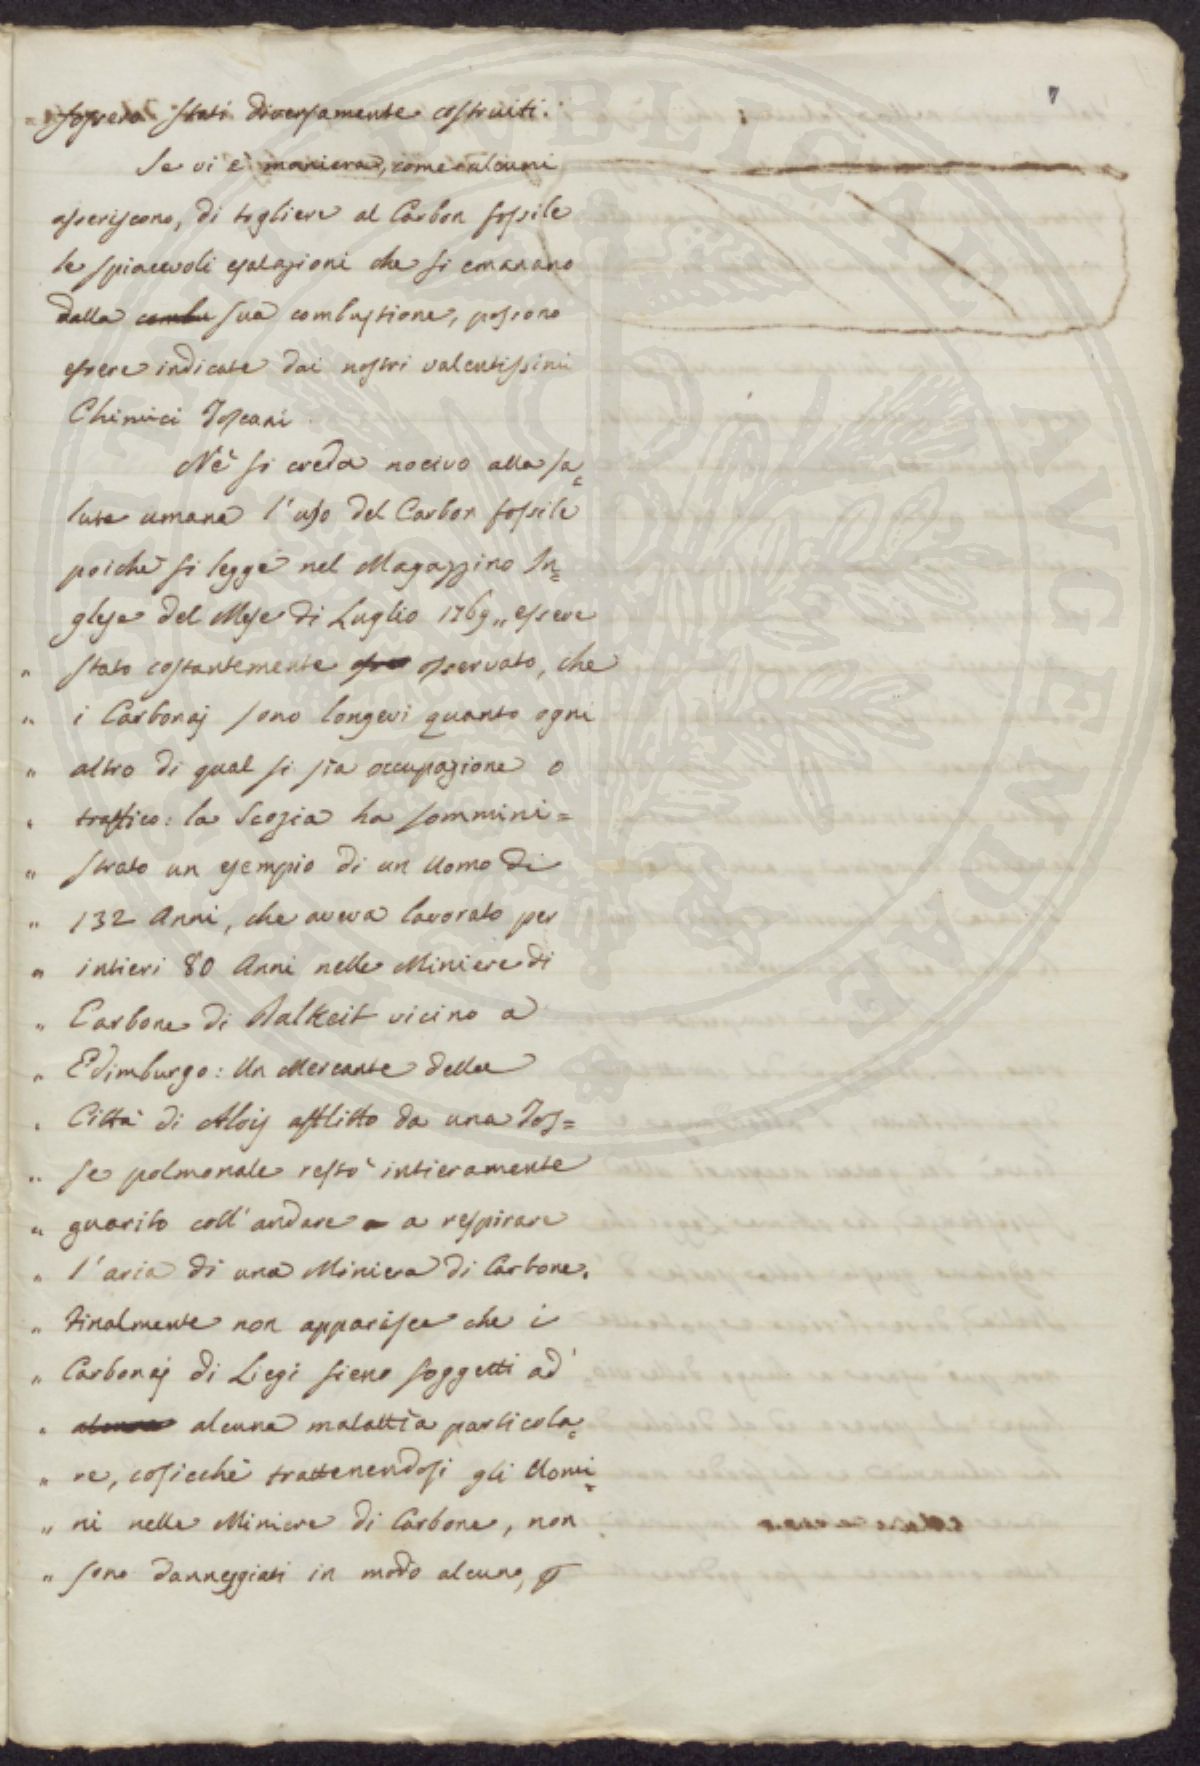 7
fossero stati diversamente costruiti.
Se vi è maniera, come alcuni
asseriscono, di togliere al Carbon fossile
le spiacevoli esalazioni che si emanano
dalla combu sua combustione, possono
essere indicate dai nostri valentissimi
Chimici Toscani.
Nè si creda nocivo alla sa=
lute umana l'uso del Carbon fossile
poichè si legge nel Magazzino In=
glese del Mese di Luglio 1769 „ essere
„ stato costantemente osservato, che
„ i Carbonaj sono longevi quanto ogni
„ altro di qual si sia occupazione o
„ traffico: la Scozia ha sommini=
„ strato un esempio di un Uomo di
„ 132 Anni, che aveva lavorato per
„ intieri 80 Anni nelle Miniere di
„ Carbone di Dalkeit vicino a
„ Edimburgo: Un Mercante della
„ Città di Aloij afflitto da una Tos=
„ se polmonale restò intieramente
„ guarito coll'andare a respirare
„ l'aria di una Miniera di Carbone.
„ Finalmente non apparisce che i
„ Carbonaj di Liegi sieno soggetti ad
„ alcuna alcuna malattia particola=
„ re, cosicchè trattenendosi gli Uomi=
„ ni nelle Miniere di Carbone, non
„ sono danneggiati in modo alcuno,
PUBLICAE AVGENDAE